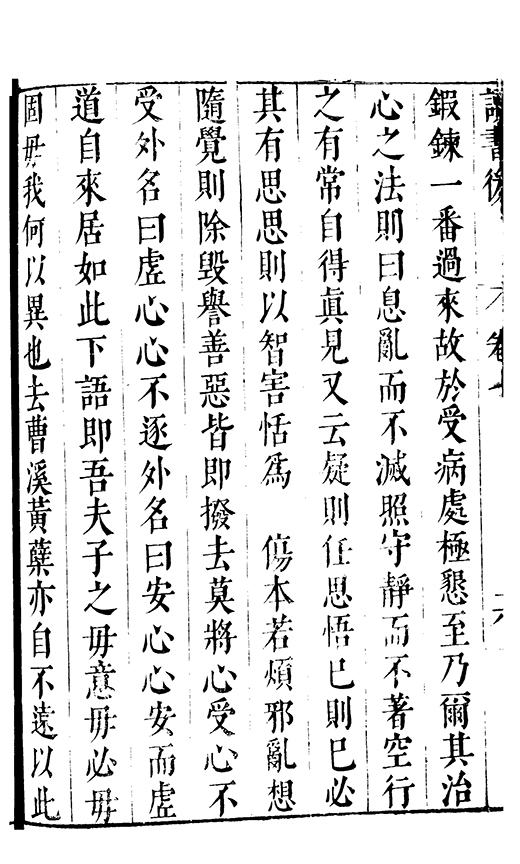 讀書後 卷 六
鍜鍊一番過來故於受病處極懇至乃爾其治
心之法則曰息亂而不滅照守靜而不著空行
之有常自得眞見又云疑則任思悟巳則巳必
其有思思則以智害恬爲 傷本若煩邪亂想
隨覺則除毀譽善惡皆即撥去莫將心受心不
受外名曰虛心心不逐外名曰安心心安而虛
道自來居如此下語即吾夫子之毋意毋必毋
固毋我何以異也去曹溪黃蘗亦自不遠以此